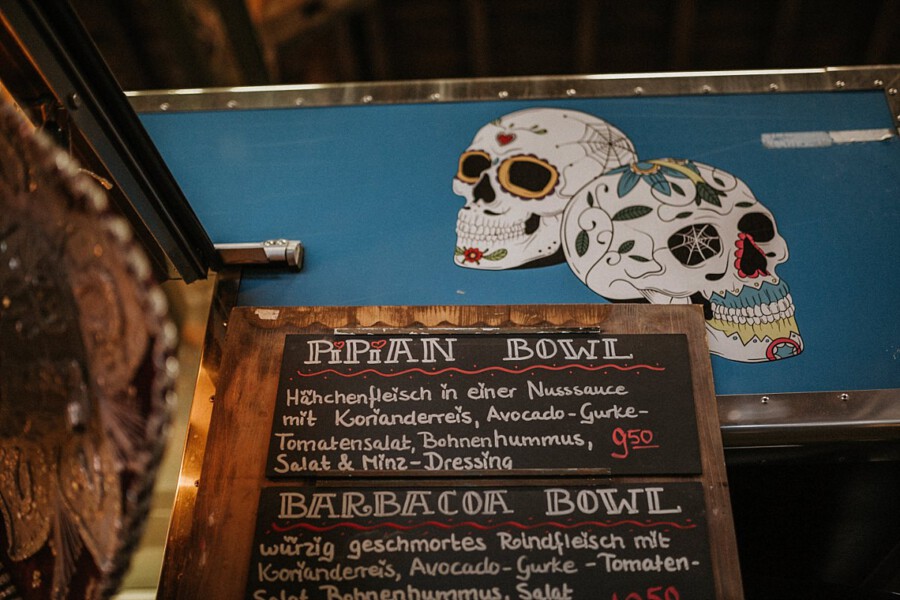 PiPiAN BOWL
Hähchenfleisch in einer Nusssauce
mit Korianderreis, Avocado-Gurke-
Tomatensalat, Bohnenhummus, 950
Salat & Minz-Dressing
BARBACOA BOWL
würzig geschmortes Roindfleisch mit
Korianderreis, Avocado-Gurke-Tomaten-
Salat, Bohnenhummus, Salat